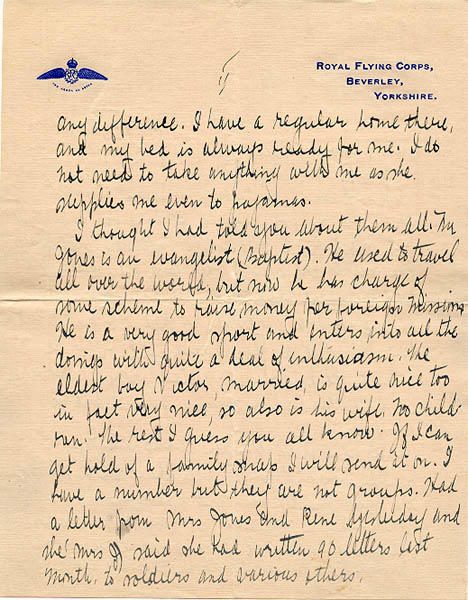 Royal Flying Corps,
Beverley,
Yorkshire.
any difference. I have a regular home there,
and my bed is always ready for me. I do
not need to take anything with me as she
supplies me even to pajamas.
I thought I had told you about them all. Mr
Jones is an evangelist (Baptist). He used to travel
all over the world, but now he has charge of
some scheme to raise money for foreign missions
He is a very good sport and enters into all the
doings with quite a deal of enthusiasm. The
eldest boy Victor, married, is quite nice too
in fact very nice, so also is his wife. No child-
ren. The rest I guess you all know. If I can
get hold of a family snap I will send it on. I
have a number but they are not groups. Had
a letter from Mrs Jones and Rene yesterday and
she Mrs J said she had written 90 letters last
month, to soldiers and various others.